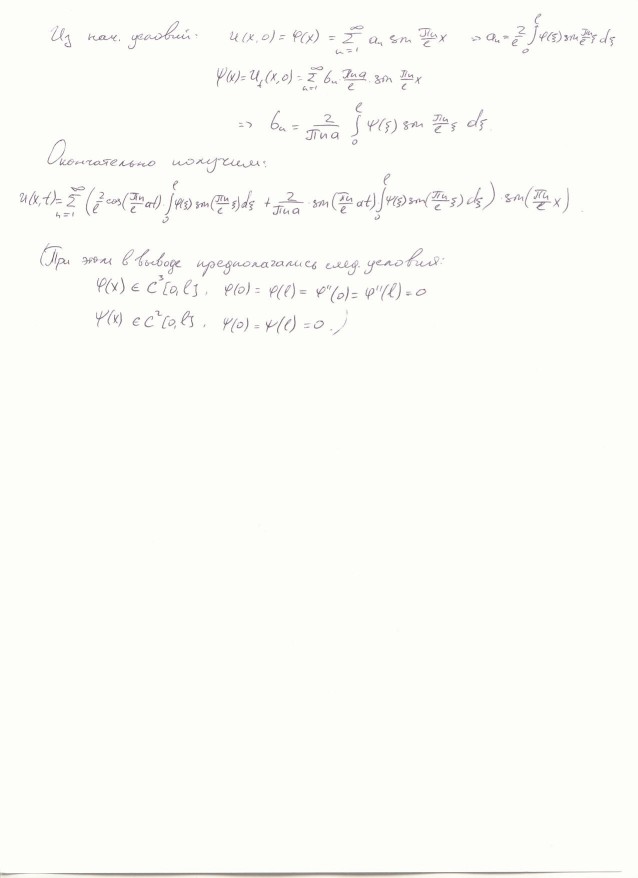 Из нач. условий: u(x,0) = φ(x) = ∑_{n=1}^{∞} aₙ sin (πn/l) x => aₙ = (2/l) ∫₀^l φ(ξ) sin (πn/l) ξ dξ
ψ(x) = u_t(x,0) = ∑_{n=1}^{∞} bₙ (πna/l) · sin (πn/l) x
=> bₙ = (2/(πna)) ∫₀^l ψ(ξ) sin (πn/l) ξ dξ.
Окончательно получим:
u(x,t) = ∑_{n=1}^{∞} ((2/l) cos((πn/l) at) · ∫₀^l φ(ξ) sin((πn/l) ξ) dξ + (2/(πna)) · sin((πn/l) at) ∫₀^l ψ(ξ) sin((πn/l) ξ) dξ) · sin((πn/l) x).
(При этом в выводе предполагались след. условия:
φ(x) ∈ C³[0,l], φ(0) = φ(l) = φ''(0) = φ''(l) = 0
ψ(x) ∈ C²[0,l], ψ(0) = ψ(l) = 0.)